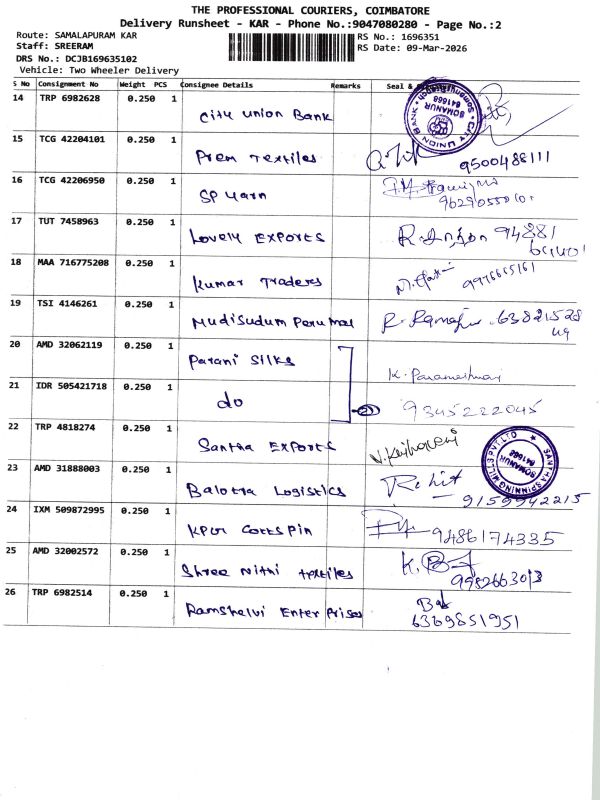 THE PROFESSIONAL COURIERS, COIMBATORE
Delivery Runsheet - KAR - Phone No.:9047080280 - Page No.:2
Route: SAMALAPURAM KAR
RS No.: 1696351
Staff: SREERAM
RS Date: 09-Mar-2026
DRS No.: DCJB169635102
Vehicle: Two Wheeler Delivery
S No Consignment No Weight PCS Consignee Details Remarks Seal &
14 TRP 6982628 0.250 1 City Union Bank
CITY UNION BANK SOMANUR 641668
15 TCG 42204101 0.250 1 Prem Textiles 9500488111
16 TCG 42206950 0.250 1 SP Yarn
17 TUT 7458963 0.250 1 Lovely Exports R. 94881
18 MAA 716775208 0.250 1 Kumar Traders 9976665161
19 TSI 4146261 0.250 1 Mudisudum Perumal R. 63821528
20 AMD 32062119 0.250 1 Parani Silks K. Parameshwar
21 IDR 505421718 0.250 1 do 2 9345222045
22 TRP 4818274 0.250 1 Santha Exports
SANTHA SPINNING MILLS PVT.LTD SOMANUR 641668
23 AMD 31888003 0.250 1 Balotra Logistics Rohit 9159942215
24 IXM 509872995 0.250 1 KPR Cotspin 9486174335
25 AMD 32002572 0.250 1 Shree Nithi textiles K. 9952663013
26 TRP 6982514 0.250 1 Ramshelvi Enter Prises 6369851951